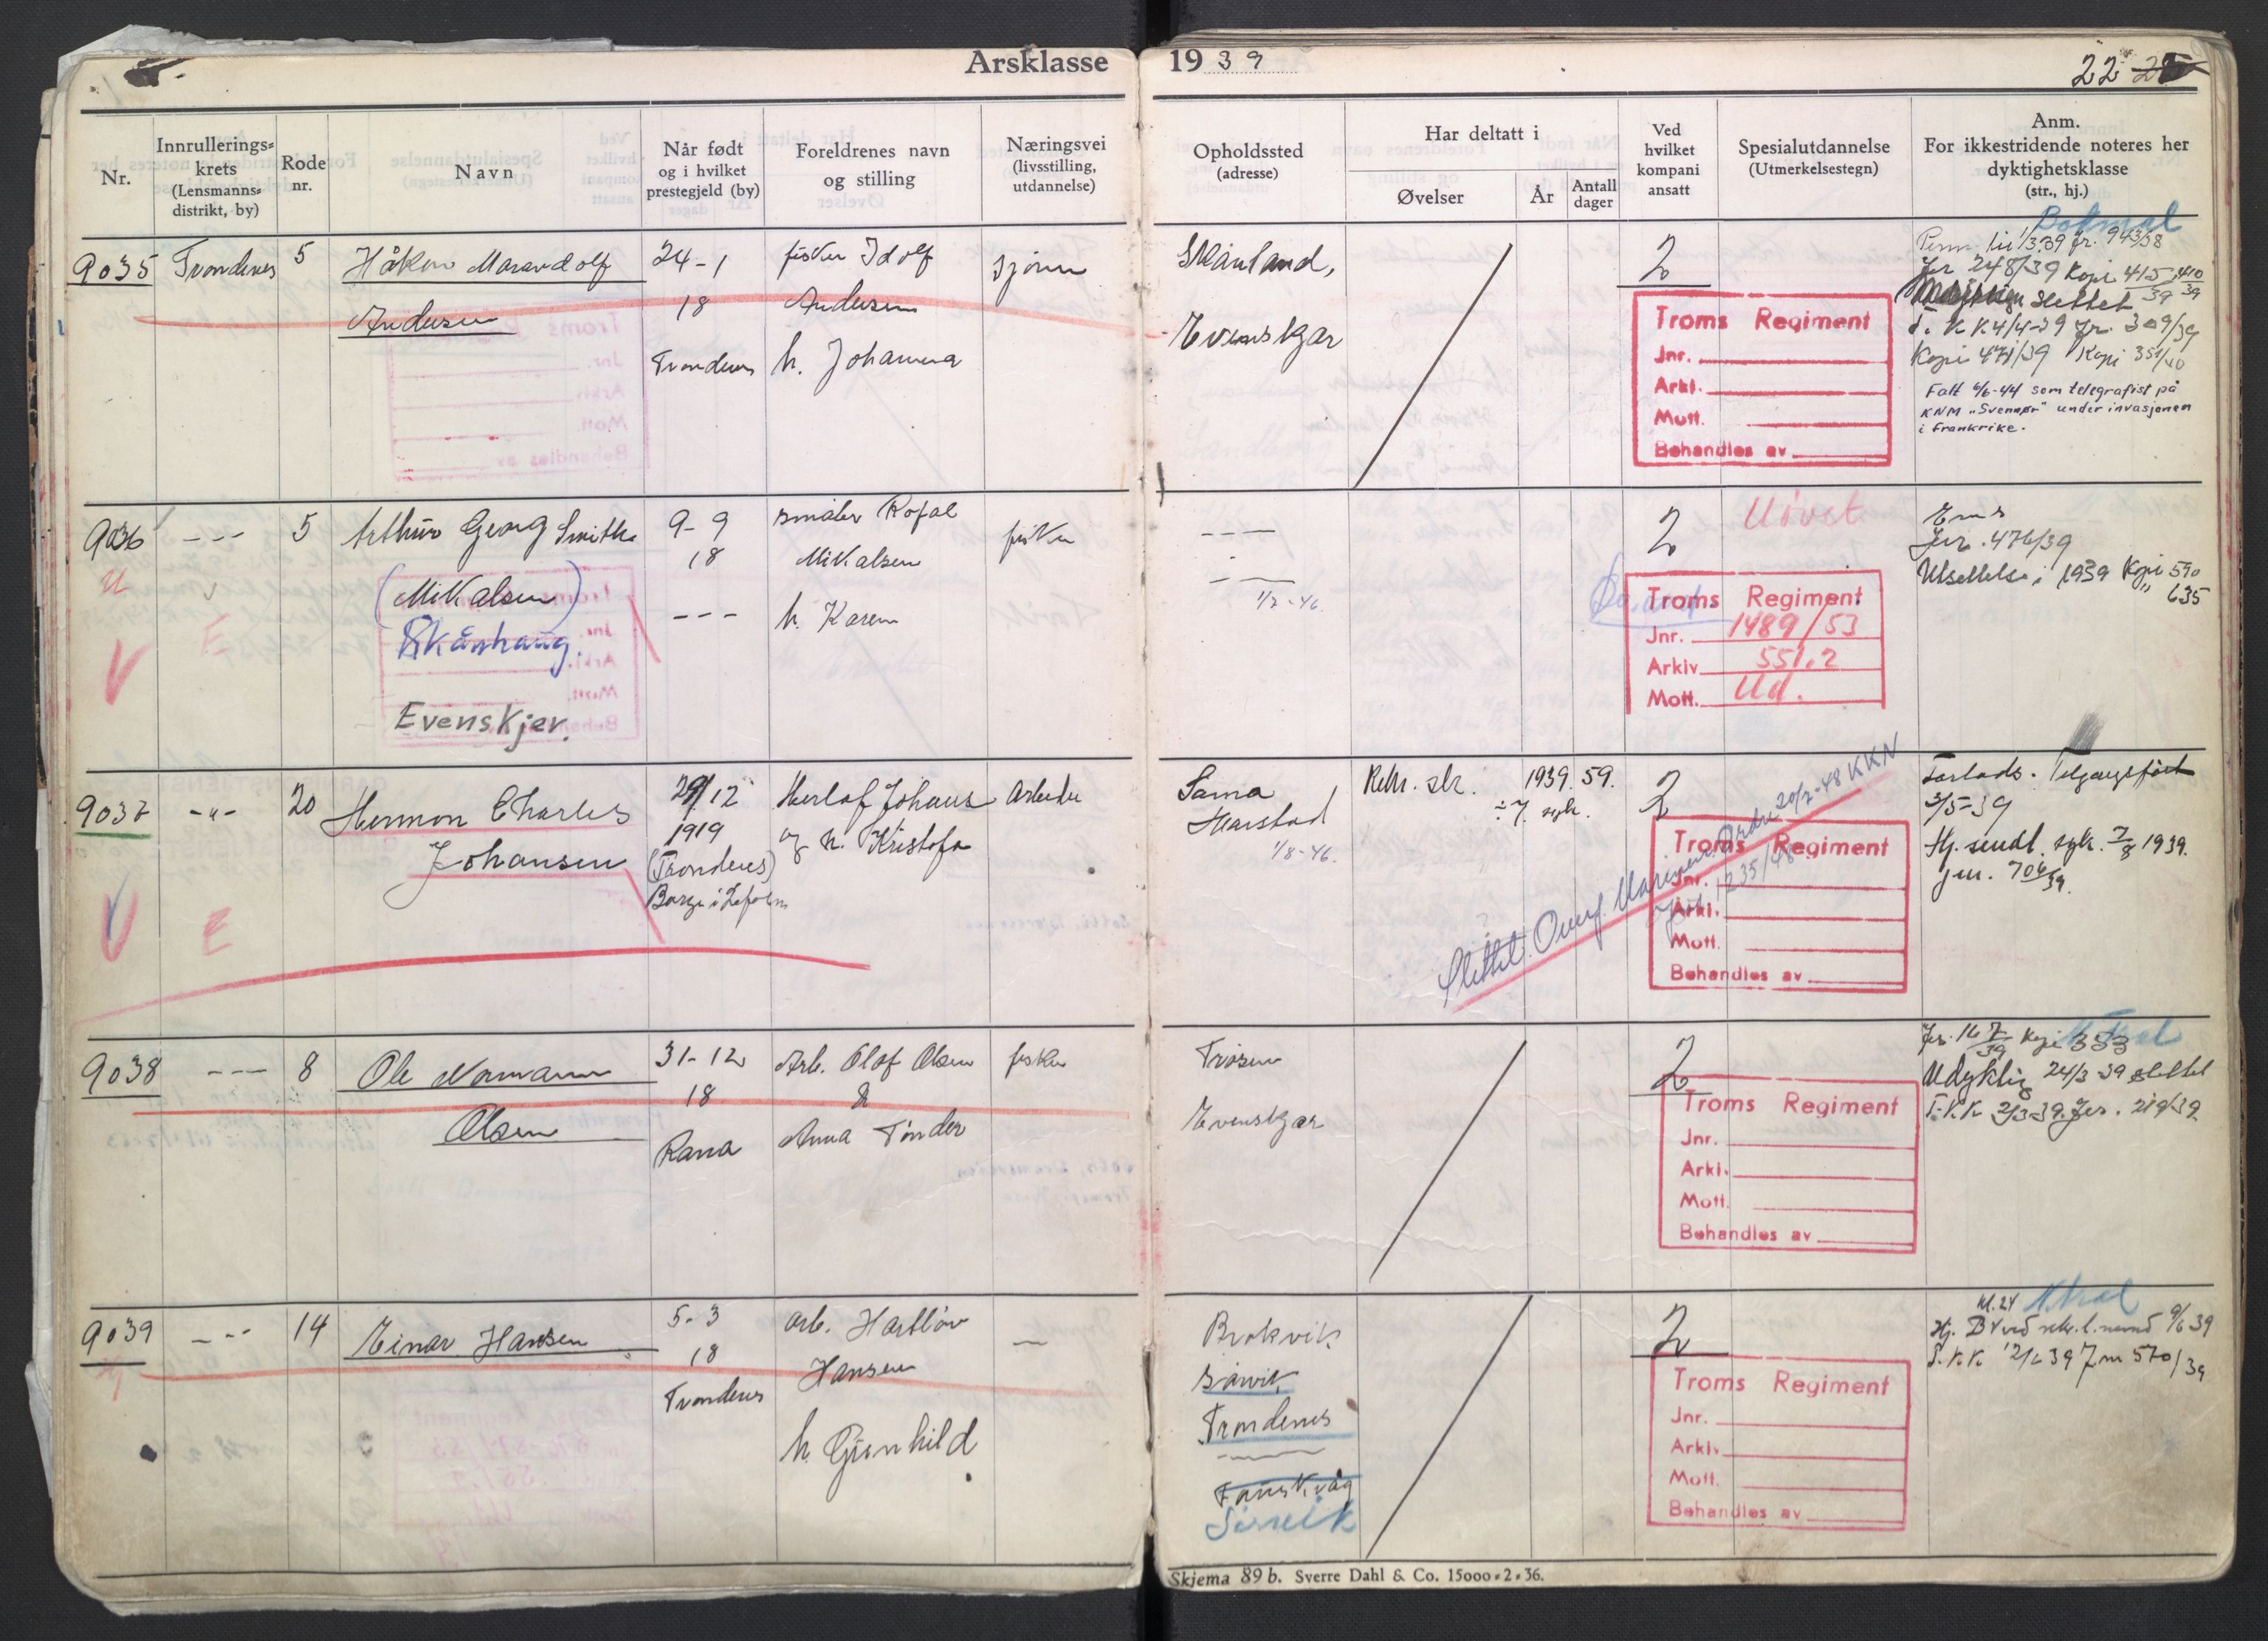 Årsklasse 1939
22
Nr.
Innrullerings-
krets
(Lensmanns-
distrikt, by)
Rode
nr.
Navn
Når født
og i hvilket
prestegjeld (by)
Foreldrenes navn
og stilling
Næringsvei
(livsstilling,
utdannelse)
Opholdssted
(adresse)
Har deltatt i
Øvelser
År
Antall
dager
Ved
hvilket
kompani
ansatt
Spesialutdannelse
(Utmerkelsestegn)
Anm.
For ikkestridende noteres her
dyktighetsklasse
(str., hj.)
9035
Trondenes
5
Håkon
Andersen
24-1
18
Trondenes
fisker Idolf
Andersen
h. Johanna
sjømn
Skånland,
Evenskjær
2
Troms Regiment
Jnr.
Arki.
Mott.
Behandles av
Perm. til 1/3 39 Jr. 943/38
Jr 248/39 Kopi 415, 410
slettet 39 39
T. K K 4/4-39 Jr. 309/39
Kopi 471/39 Kopi 351/40
Falt 6/6-44 som telegrafist på
KNM "Svenner" under invasjonen
i Frankrike.
9036
---
5
Arthur Georg Smith
(Mikalsen)
Skånhaug.
Evenskjer.
9-9
18
---
småbr Rofal
Mikalsen
h. Karen
fisker
---
1/2-46.
2
Uøvet
Troms Regiment
Jnr. 1489/53
Arkiv 551.2
Mott. Ud.
Jnr. 476/39
Utsettelse i 1939 Kopi 590
" 635
9037
-"-
20
Hermon Charles
Johansen
29/12
1919
(Trondenes)
Herlof Johans
og h. Kristofa
Arbeider
Sama
Harstad
1/8-46.
Rekr. sk.
1939.
59.
÷ 7. syk.
2
Slettet. Overf. Marinen. Ordre 20/2-48 KKN
Troms Regiment
Jnr.
Arki.
Mott.
Behandles av
3/5-39
Hj. sendt syk. 7/8 1939.
jnr. 706/39.
V
E
9038
---
8
Ole Normann
Olsen
31-12
18
Rana
Arb. Olaf Olsen
&
Anna Tønder
fisker
Trøsen
Evenskjær
2
Troms Regiment
Jnr.
Arki.
Mott.
Behandles av
Kopi 353
Udyktig 24/3-39 slettet
T.K.K 2/3-39. Jnr. 219/39
9039
14
Einar Hansen
5-3
18
Trondenes
arb. Hartløv
Hansen
h. Gunhild
—
Brokvik
Trondenes
2
Troms Regiment
Jnr.
Arkiv
Mott.
Behandles av
Kl. 24
T.K.K 12/6 39 Jnr 570/39
Skjema 89 b. Sverre Dahl & Co. 15000-2-36.